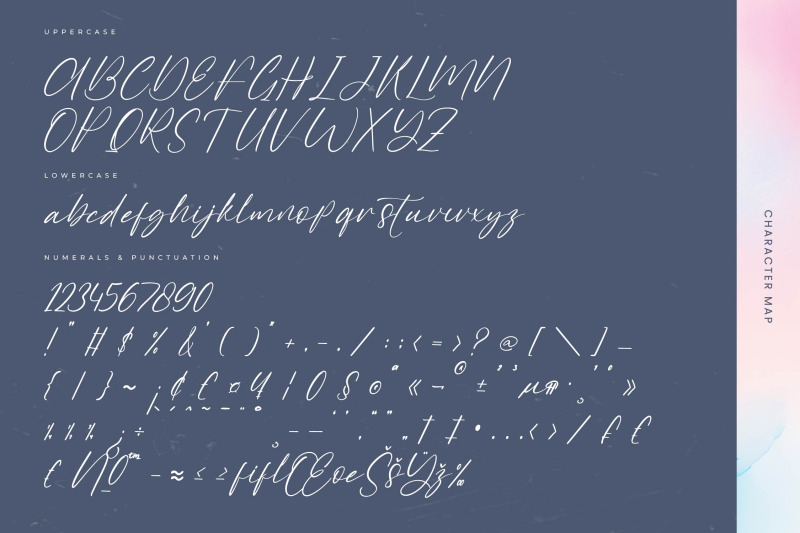 UPPERCASE
ABCDEFGHIJKLMN
OPQRSTUVWXYZ
LOWERCASE
abcdefghijklmnopqrstuvwxyz
NUMERALS & PUNCTUATION
1234567890
! " # $ % & ' ( ) * + , - . / : ; < = > ? @ [ \ ] _
{ | } ~ ¡ ¢ £ ¤ ¥ ¦ § © ª « ¬ ® ± ² ³ µ ¶ · ¸ ¹ º »
¼ ½ ¾ ¿ ÷ – — † ‡ • … ‹ › ⁄ € ₤
№ ™ − ≈ ≤ ≥ fi fl Œ œ Š š Ÿ ž ‰
CHARACTER MAP